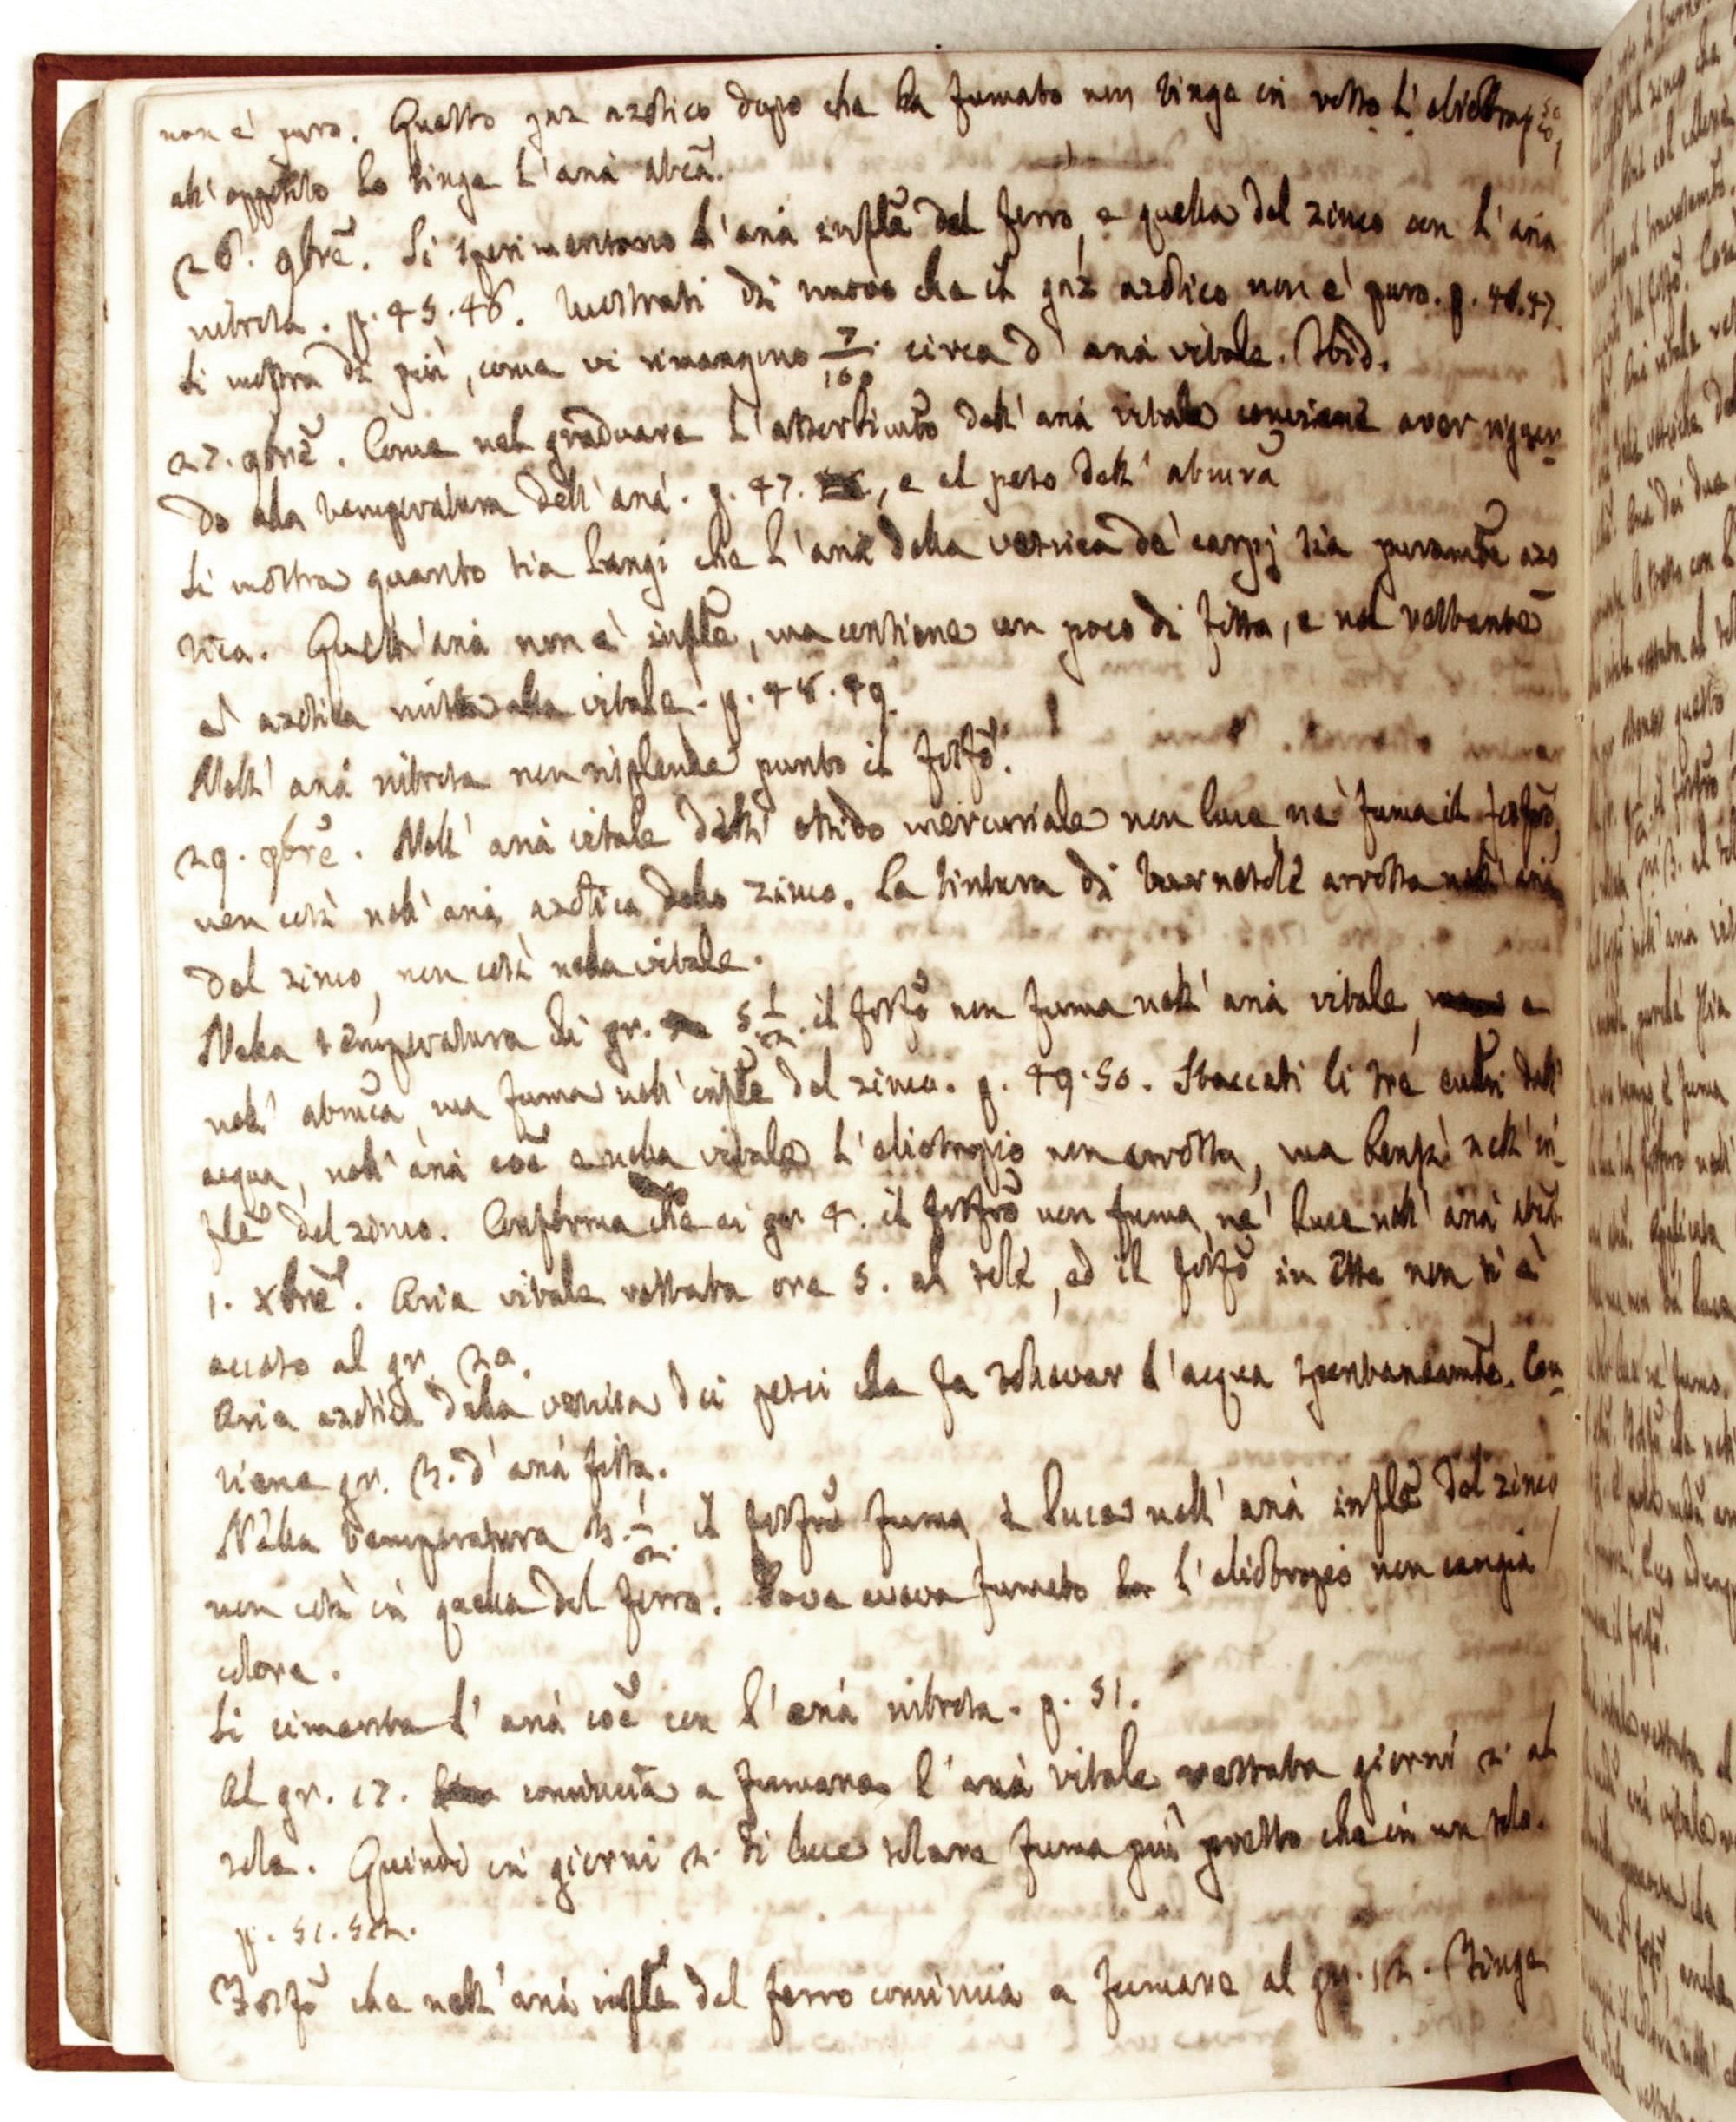 non e' puro. Questo gaz azotico dopo che ha fumato non tinge in rosso l'eliotropio,
all'opposito lo tinge l'aria abcã.
26. 9brẽ. Si sperimentano l'aria inflẽ del ferro, e quella del zinco con l'aria
nitrosa. p. 45.46. Mostrasi di nuovo che il gaz azotico non e' puro. p. 46.47.
Si mostra di più, come vi rimangono 7/100 circa d'aria vitale. Ibid.
27. 9brẽ. Come nel graduare l'assorbimto dell'aria vitale conviene aver riguar-
do alla temperatura dell'aria. p. 47. , e al peso dell'
Si mostra quanto sia lungi che l'aria della vessica de' carpj sia puramẽte azo
tica. Quell'aria non e' inflẽ, ma contiene un poco di fissa, e nel restante
e' azotica mista alla vitale. p. 48.49.
Nell'aria nitrosa non risplende punto il fosfõ.
29. 9brẽ. Nell'aria vitale dell'ossido mercuriale non luce ne' fuma il fosfõ,
non così nell'aria azotica dello zinco. La tintura di tornasole arrossa nell'aria
del zinco, non così nella vitale.
Nella temperatura di gr. 5. 1/2. il fosfõ non fuma nell'aria vitale, e
nell' ma fuma nell'inflẽ del zinco. p. 49.50. Staccati li tre dall'
acqua, nell'aria coẽ e nella vitale l'eliotropio non arrossa, ma bensì nell'in
flẽ del zinco. Conferma che ai gr 4. il fosfrõ non fuma, ne' luce nell'aria
1. Xbrẽ. Aria vitale restata ore 5. al sole, ed il fosfõ in essa non si e'
acceso al gr. 22.
Aria azotica della vessica dei pesci che fa sollevar l'acqua spontaneamẽte. Con-
tiene gr. 3. d'aria fissa.
Nella temperatura 3. 1/2. il fosfrõ fuma, e luce nell'aria inflẽ del zinco,
non così in quella del ferro. Dove aveva fumato l'eliotropio non cangia
colore.
Si cimenta l'aria coẽ con l'aria nitrosa. p. 51.
Al gr. 17. comincia a fumare l'aria vitale restata giorni 2. al
sole. Quindi in giorni 2. di luce solare fuma più presto che in un solo.
p. 51.52.
Fosfõ che nell'aria inflẽ del ferro comincia a fumare al gr. 12. Tinge